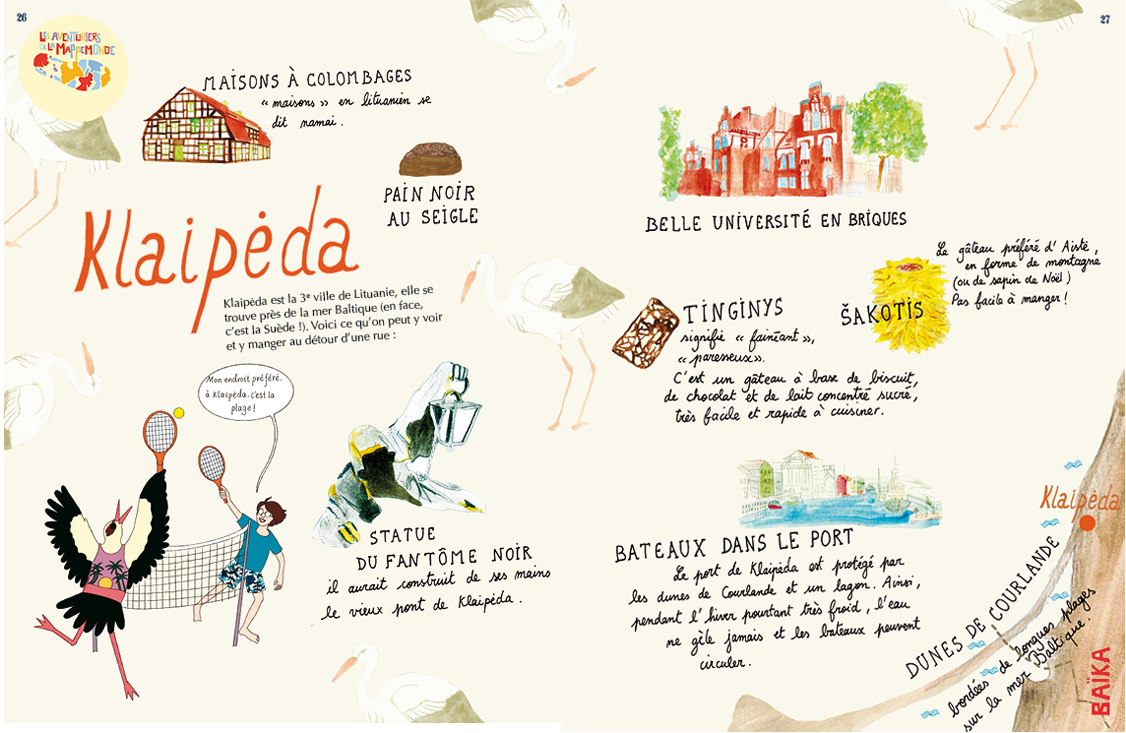 26
LES AVENTURIERS
DE LA MAPPEMONDE
MAISONS À COLOMBAGES
« maisons » en lituanien se
dit namai.
PAIN NOIR
AU SEIGLE
Klaipėda
Klaipėda est la 3e ville de Lituanie, elle se
trouve près de la mer Baltique (en face,
c'est la Suède !). Voici ce qu'on peut y voir
et y manger au détour d'une rue :
Mon endroit préféré,
à Klaipėda, c'est la
plage !
STATUE
DU FANTÔME NOIR
il aurait construit de ses mains
le vieux pont de Klaipėda.
27
BELLE UNIVERSITÉ EN BRIQUES
Le gâteau préféré d'Aistė,
en forme de montagne
(ou de sapin de Noël)
Pas facile à manger !
ŠAKOTIS
TINGINYS
signifie « fainéant »,
« paresseux ».
C'est un gâteau à base de biscuit,
de chocolat et de lait concentré sucré,
très facile et rapide à cuisiner.
BATEAUX DANS LE PORT
Le port de Klaipėda est protégé par
les dunes de Courlande et un lagon. Ainsi,
pendant l'hiver pourtant très froid, l'eau
ne gèle jamais et les bateaux peuvent
circuler.
Klaipėda
DUNES DE COURLANDE
bordées de longues plages
sur la mer Baltique.
BAÏKA